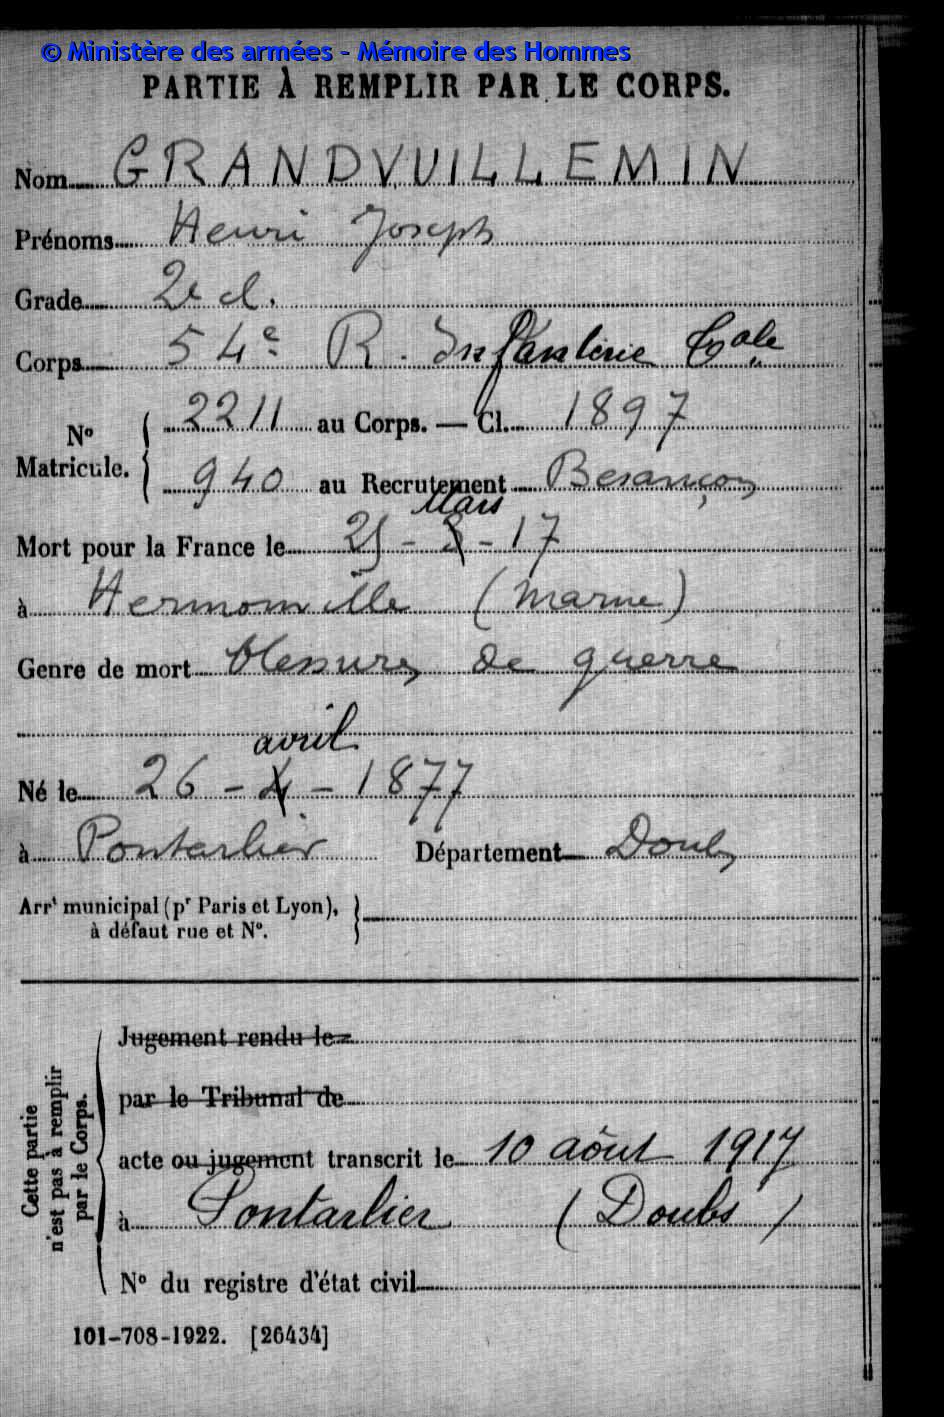 © Ministère des armées - Mémoire des Hommes
PARTIE À REMPLIR PAR LE CORPS.
Nom GRANDVUILLEMIN
Prénoms Henri Joseph
Grade 2e cl.
Corps 54e R. Infanterie Cole
No Matricule. { 2211 au Corps. — Cl. 1897
940 au Recrutement Besançon
Mars
Mort pour la France le 25 - 3 - 17
à Hermonville (Marne)
Genre de mort blessures de guerre
avril
Né le 26 - 4 - 1877
à Pontarlier Département Doubs
Arrt municipal (pr Paris et Lyon), à défaut rue et No. }
Cette partie n'est pas à remplir par le Corps.
Jugement rendu le
par le Tribunal de
acte ou jugement transcrit le 10 août 1917
à Pontarlier (Doubs)
No du registre d'état civil
101-708-1922. [26434]